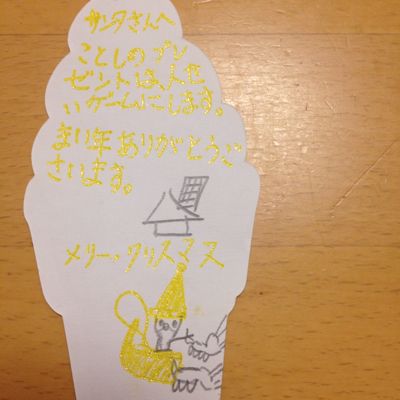 サンタさんへ
ことしのプレ
ゼントは人せ
いゲームにします。
まい年ありがとうご
ざいます。
メリークリスマス